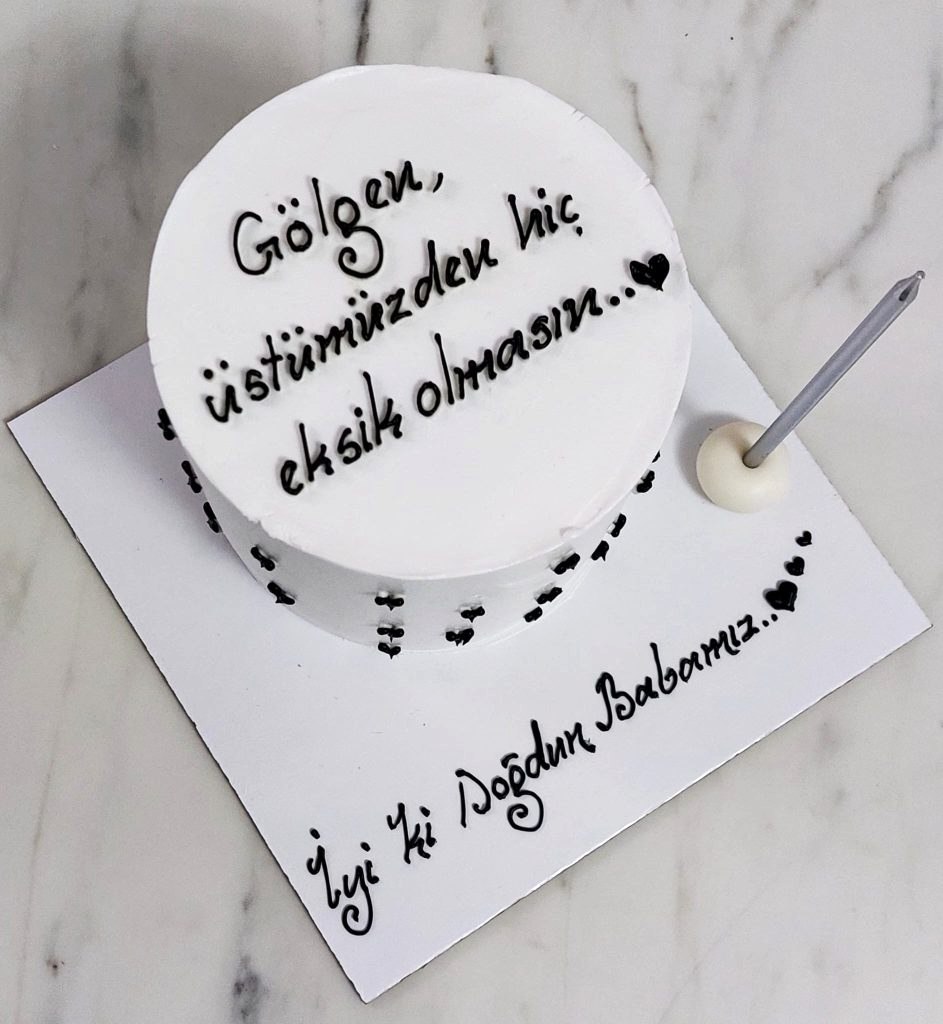 Gölgen,
üstümüzden hiç
eksik olmasın..
İyi ki Doğdun Babamız..